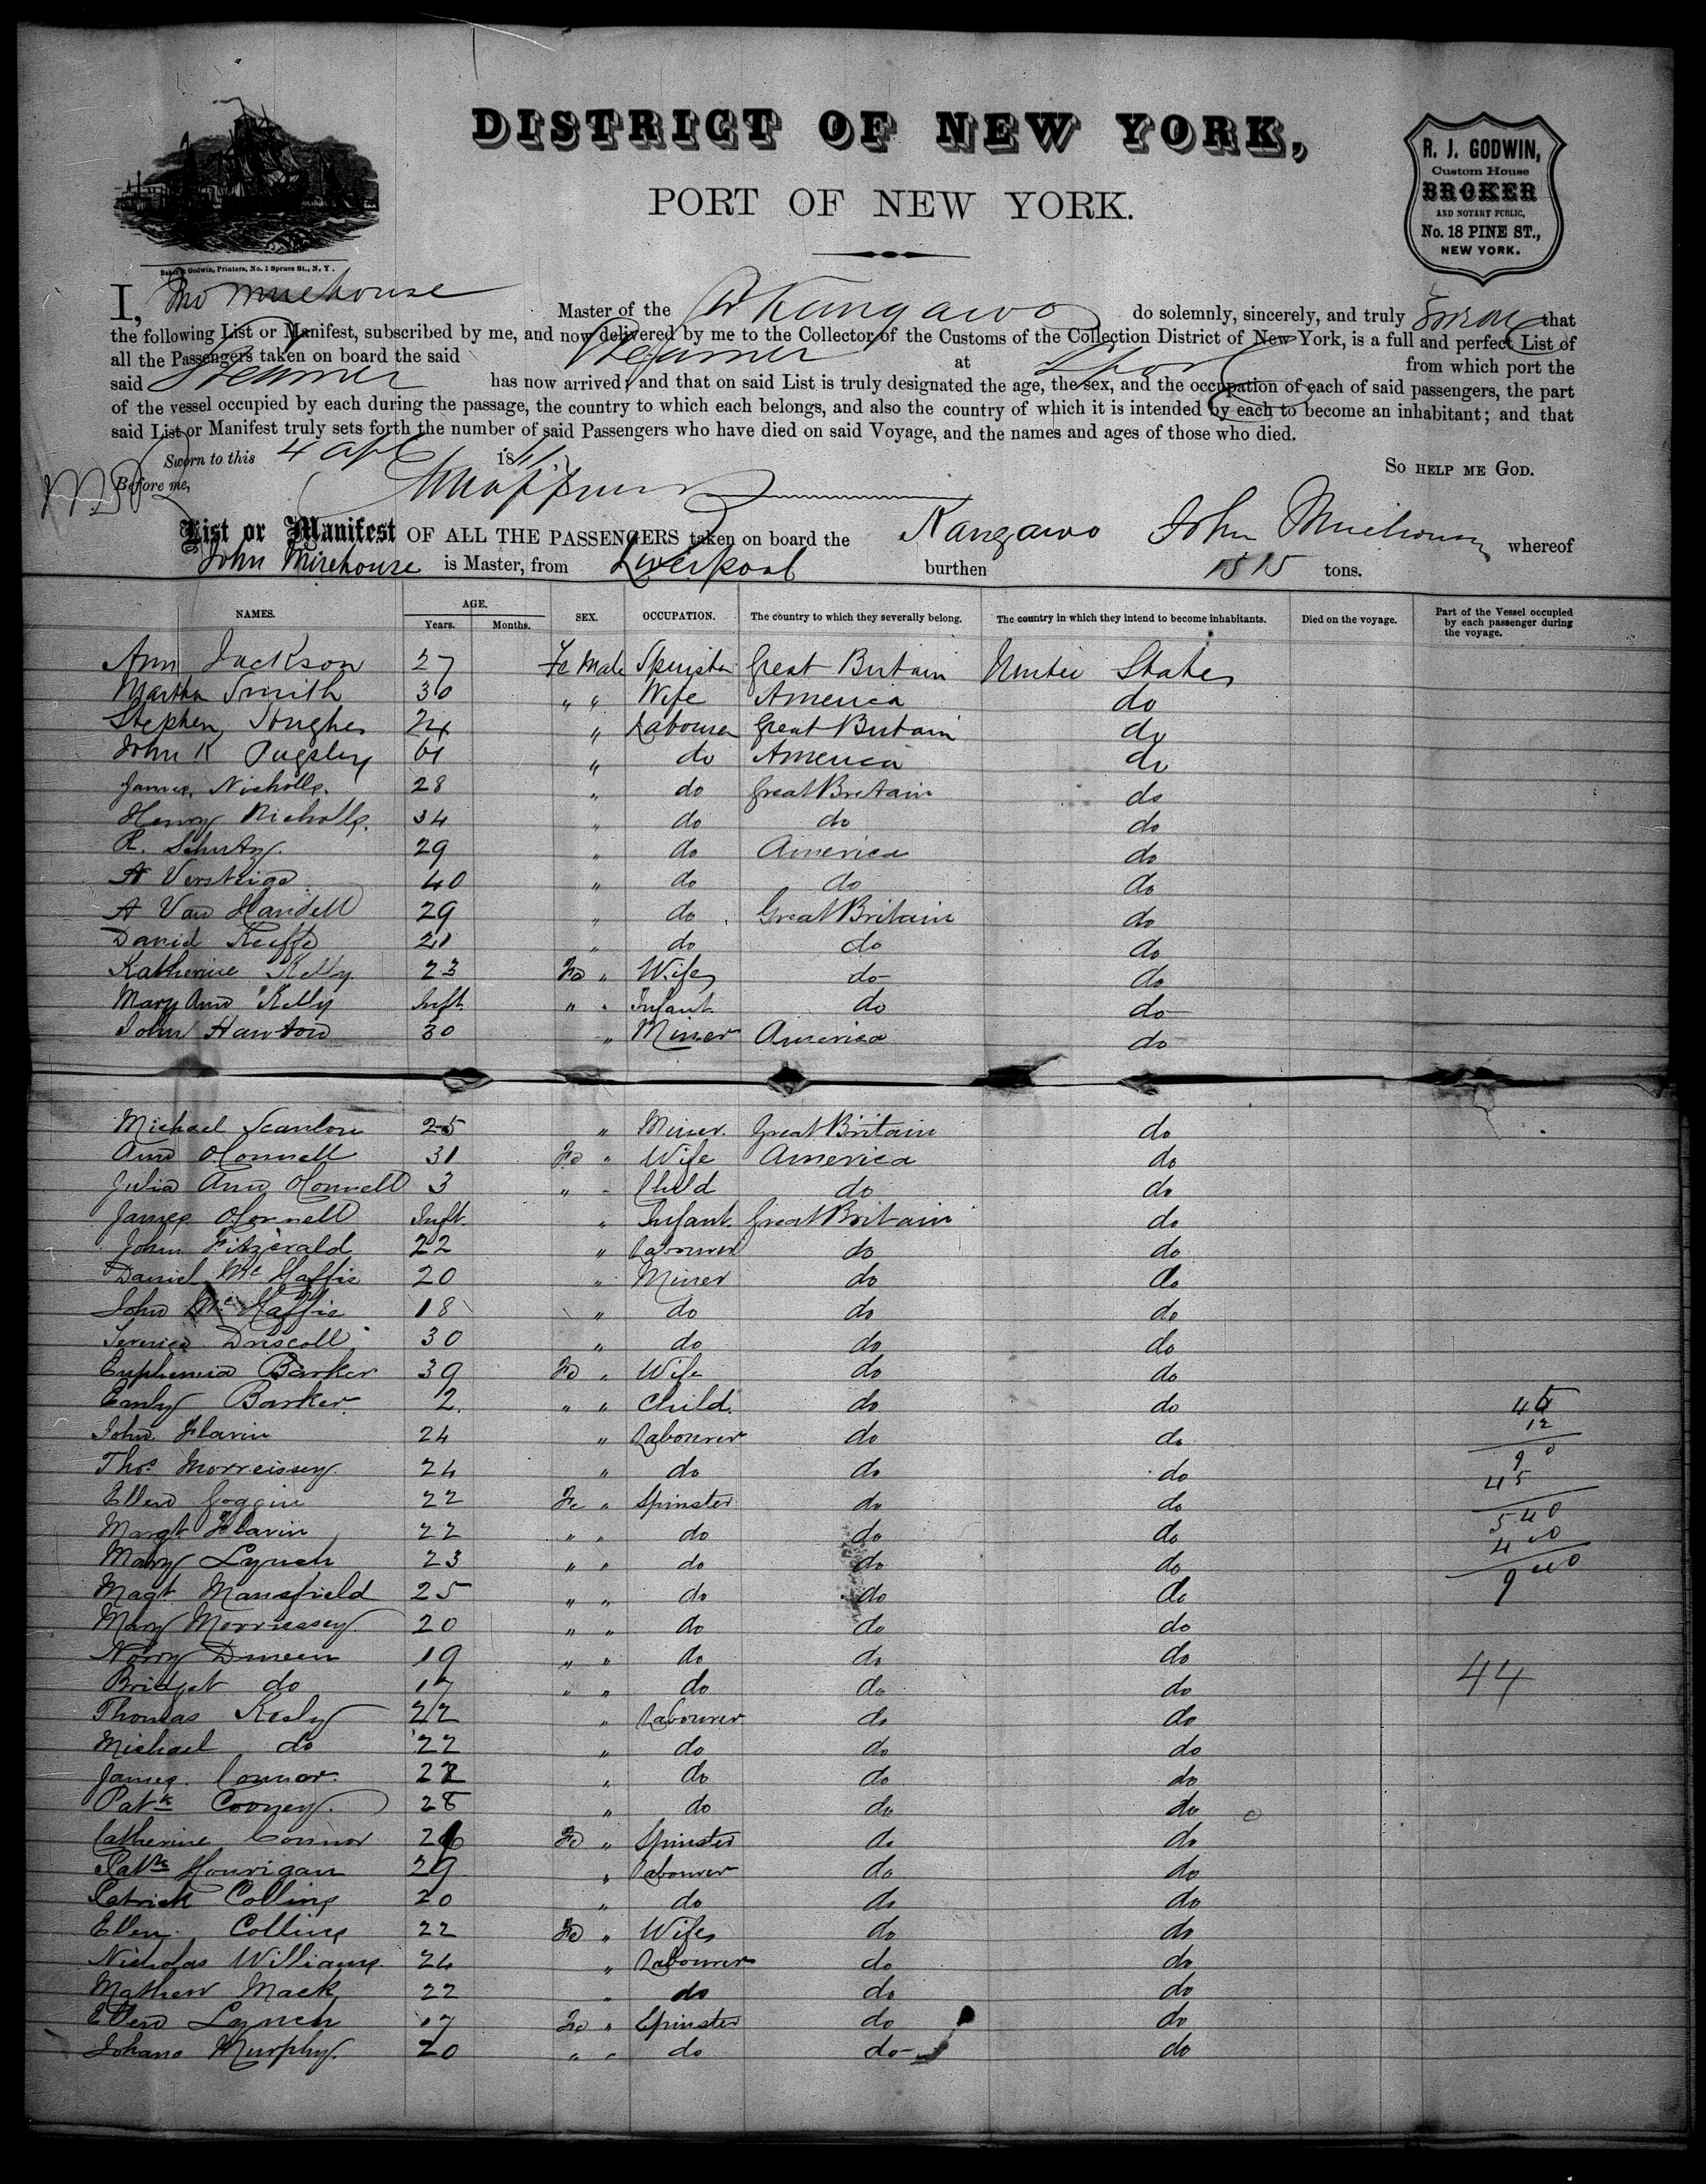 DISTRICT OF NEW YORK,
PORT OF NEW YORK.
R. J. GODWIN,
Custom House
BROKER
AND NOTARY PUBLIC,
No. 18 PINE ST.,
NEW YORK.
Baker & Godwin, Printers, No. 1 Spruce St., N. Y.
I, Jno Mirehouse Master of the Kangaroo do solemnly, sincerely, and truly swear that
the following List or Manifest, subscribed by me, and now delivered by me to the Collector of the Customs of the Collection District of New York, is a full and perfect List of
all the Passengers taken on board the said Steamer at Lpool from which port the
said Steamer has now arrived; and that on said List is truly designated the age, the sex, and the occupation of each of said passengers, the part
of the vessel occupied by each during the passage, the country to which each belongs, and also the country of which it is intended by each to become an inhabitant; and that
said List or Manifest truly sets forth the number of said Passengers who have died on said Voyage, and the names and ages of those who died.
Sworn to this 4 Apl 18
So help me God.
Before me,
List or Manifest OF ALL THE PASSENGERS taken on board the Kangaroo John Mirehouse whereof
John Mirehouse is Master, from Liverpool burthen 1515 tons.
NAMES. AGE. Years. Months. SEX. OCCUPATION. The country to which they severally belong. The country in which they intend to become inhabitants. Died on the voyage. Part of the Vessel occupied by each passenger during the voyage.
Ann Jackson 27 Fe Male Spinster Great Britain United States
Martha Smith 30 " " Wife America do
Stephen Hughes 24 " Labourer Great Britain do
John K Pugsley 61 " do America do
James Nicholls. 28 " do Great Britain do
Henry Nicholls. 34 " do do do
R. Schutz. 29 " do America do
A Verstrige 40 " do do do
A Van Handell 29 " do Great Britain do
David Keiffe 21 " do do do
Katherine Kelly 23 Fe " Wife do do
Mary Ann Kelly Inft. " " Infant do do
John Hawton 30 " Miner America do
Michael Scanlon 25 " Miner. Great Britain do
Ann OConnell 31 Fe " Wife America do
Julia Ann OConnell 3 " " Child do do
James OConnell Inft. " Infant Great Britain do
John Fitzgerald 22 " Labourer do do
Daniel McHaffie 20 " Miner do do
John McHaffie 18 " do do do
Driscoll 30 " do do do
Euphemia Barker 39 Fe " Wife do do
Emly Barker 2. " " Child. do do 45
John Flavin 24 " Labourer do do 12
Thos Morreissey 24 " do do do 90
Ellen Goggin 22 Fe " Spinster do do 45
Margt Flavin 22 " " do do do 540
Mary Lynch 23 " " do do do 400
Magt Mansfield 25 " " do do do 940
Mary Morriessey 20 " " do do do
Norry Dineen 19 " " do do do
Bridget do 17 " " do do do 44
Thomas Kealy 22 " Labourer do do
Michael do 22 " do do do
James Connor. 22 " do do do
Patk Cooney. 28 " do do do
Catherine Connor Fe " Spinster do do
Patk Hourigan 29 " Labourer do do
Patrick Collins 20 " do do do
Ellen Collins 22 Fe " Wife do do
Nicholas Williams 24 " Labourer do do
Mathew Mack 22 " do do do
Ellen Lynch 17 Fe " Spinster do do
Johana Murphy. 20 " " do do do